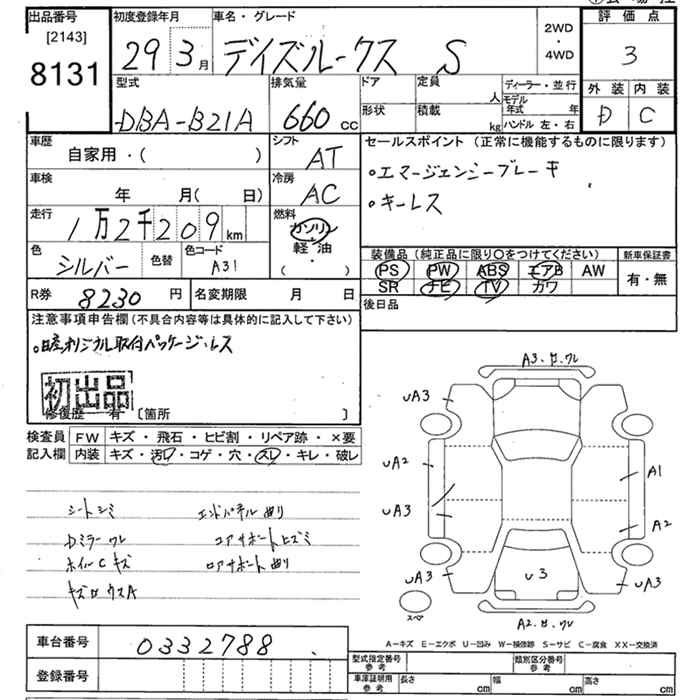 出品番号
[2143]
8131
初度登録年月
29 3月
車名・グレード
デイズルークス S
2WD
・
4WD
評価点
3
外装 内装
D C
型式
DBA-B21A
排気量
660 cc
ドア
形状
定員 人
積載 kg
ディーラー・並行
モデル年式 年
ハンドル 左・右
車歴
自家用・( )
シフト
AT
車検
年 月( 日)
冷房
AC
走行
1万2千209 km
燃料
ガソリン
軽・油
( )
色
シルバー
色替
色コード
A31
R券
8230 円
名変期限 月 日
セールスポイント (正常に機能するものに限ります)
・エマージェンシーブレーキ
・キーレス
装備品(純正品に限り〇をつけてください)
PS PW ABS エアB AW
SR ナビ TV カワ
新車保証書
有・無
後日品
注意事項申告欄(不具合内容等は具体的に記入して下さい)
・日産オリジナル取付パッケージレス
初出品
修復歴 有 〔箇所 〕
検査員 FW キズ・飛石・ヒビ割・リペア跡・×要
記入欄 内装 キズ・汚レ・コゲ・穴・スレ・キレ・破レ
シートシミ
Dミラーワレ
ホイルCキズ
エンドパネル曲り
コアサポートヒズミ
ロアサポート曲り
A3.ロ.ワレ
UA3
UA3
UA2
A1
UA3
A2
UA3
U3
UA3
スペア
A2.ロ.ワレ
A-キズ E-エクボ U-凹み W-補修跡 S-サビ C-腐食 XX-交換済
車台番号
0332788
登録番号
型式指定番号
参考
類別区分番号
参考
車庫証明用
参考
長さ cm
幅 cm
高さ cm